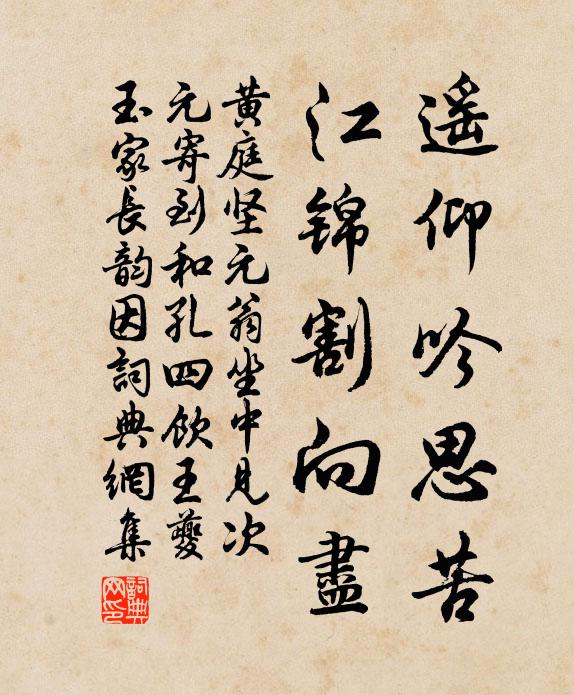 遥仰吟思苦
江锦割向盡
黄庭坚元翁坐中見次
元寄到和孔四饮王夔
玉家長韵因詞典網集
詞典网印